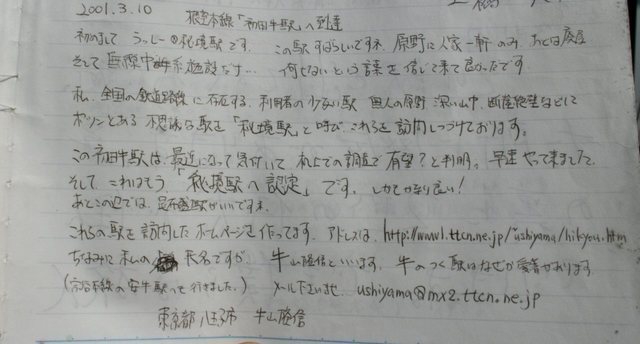 2001.3.10
根室本線「初田牛駅」へ到達
初めまして うっしー@秘境駅です。 この駅すばらしいですネ。原野に人家一軒のみ、あとは廃屋
そして 施設だけ… 何もないという言葉を信じて来て良かったです
私、全国の鉄道路線に存在する、利用者の少ない駅 無人の原野 深い山中、断崖絶壁などに
ポツンとある 不思議な駅を「秘境駅」と呼び、これらを訪問しつづけております。
この初田牛駅は、最近になって気付いて 机上での調査で有望?と判明。早速やって来ました。
そして、これはもう「秘境駅へ認定」です。しかもかなり良い!
あとこの辺では、 駅がいいですネ。
これらの駅を訪問したホームページを作ってます。アドレスは、http://www1.ttcn.ne.jp/~ushiyama/hikyou.htm
ちなみに私の 氏名ですが、 牛山隆信といいます。牛のつく駅はなぜか愛着があります
(宗谷本線の安牛駅へも行きました。) メール下さいませ ushiyama@mx2.ttcn.ne.jp
東京都八王子市 牛山隆信